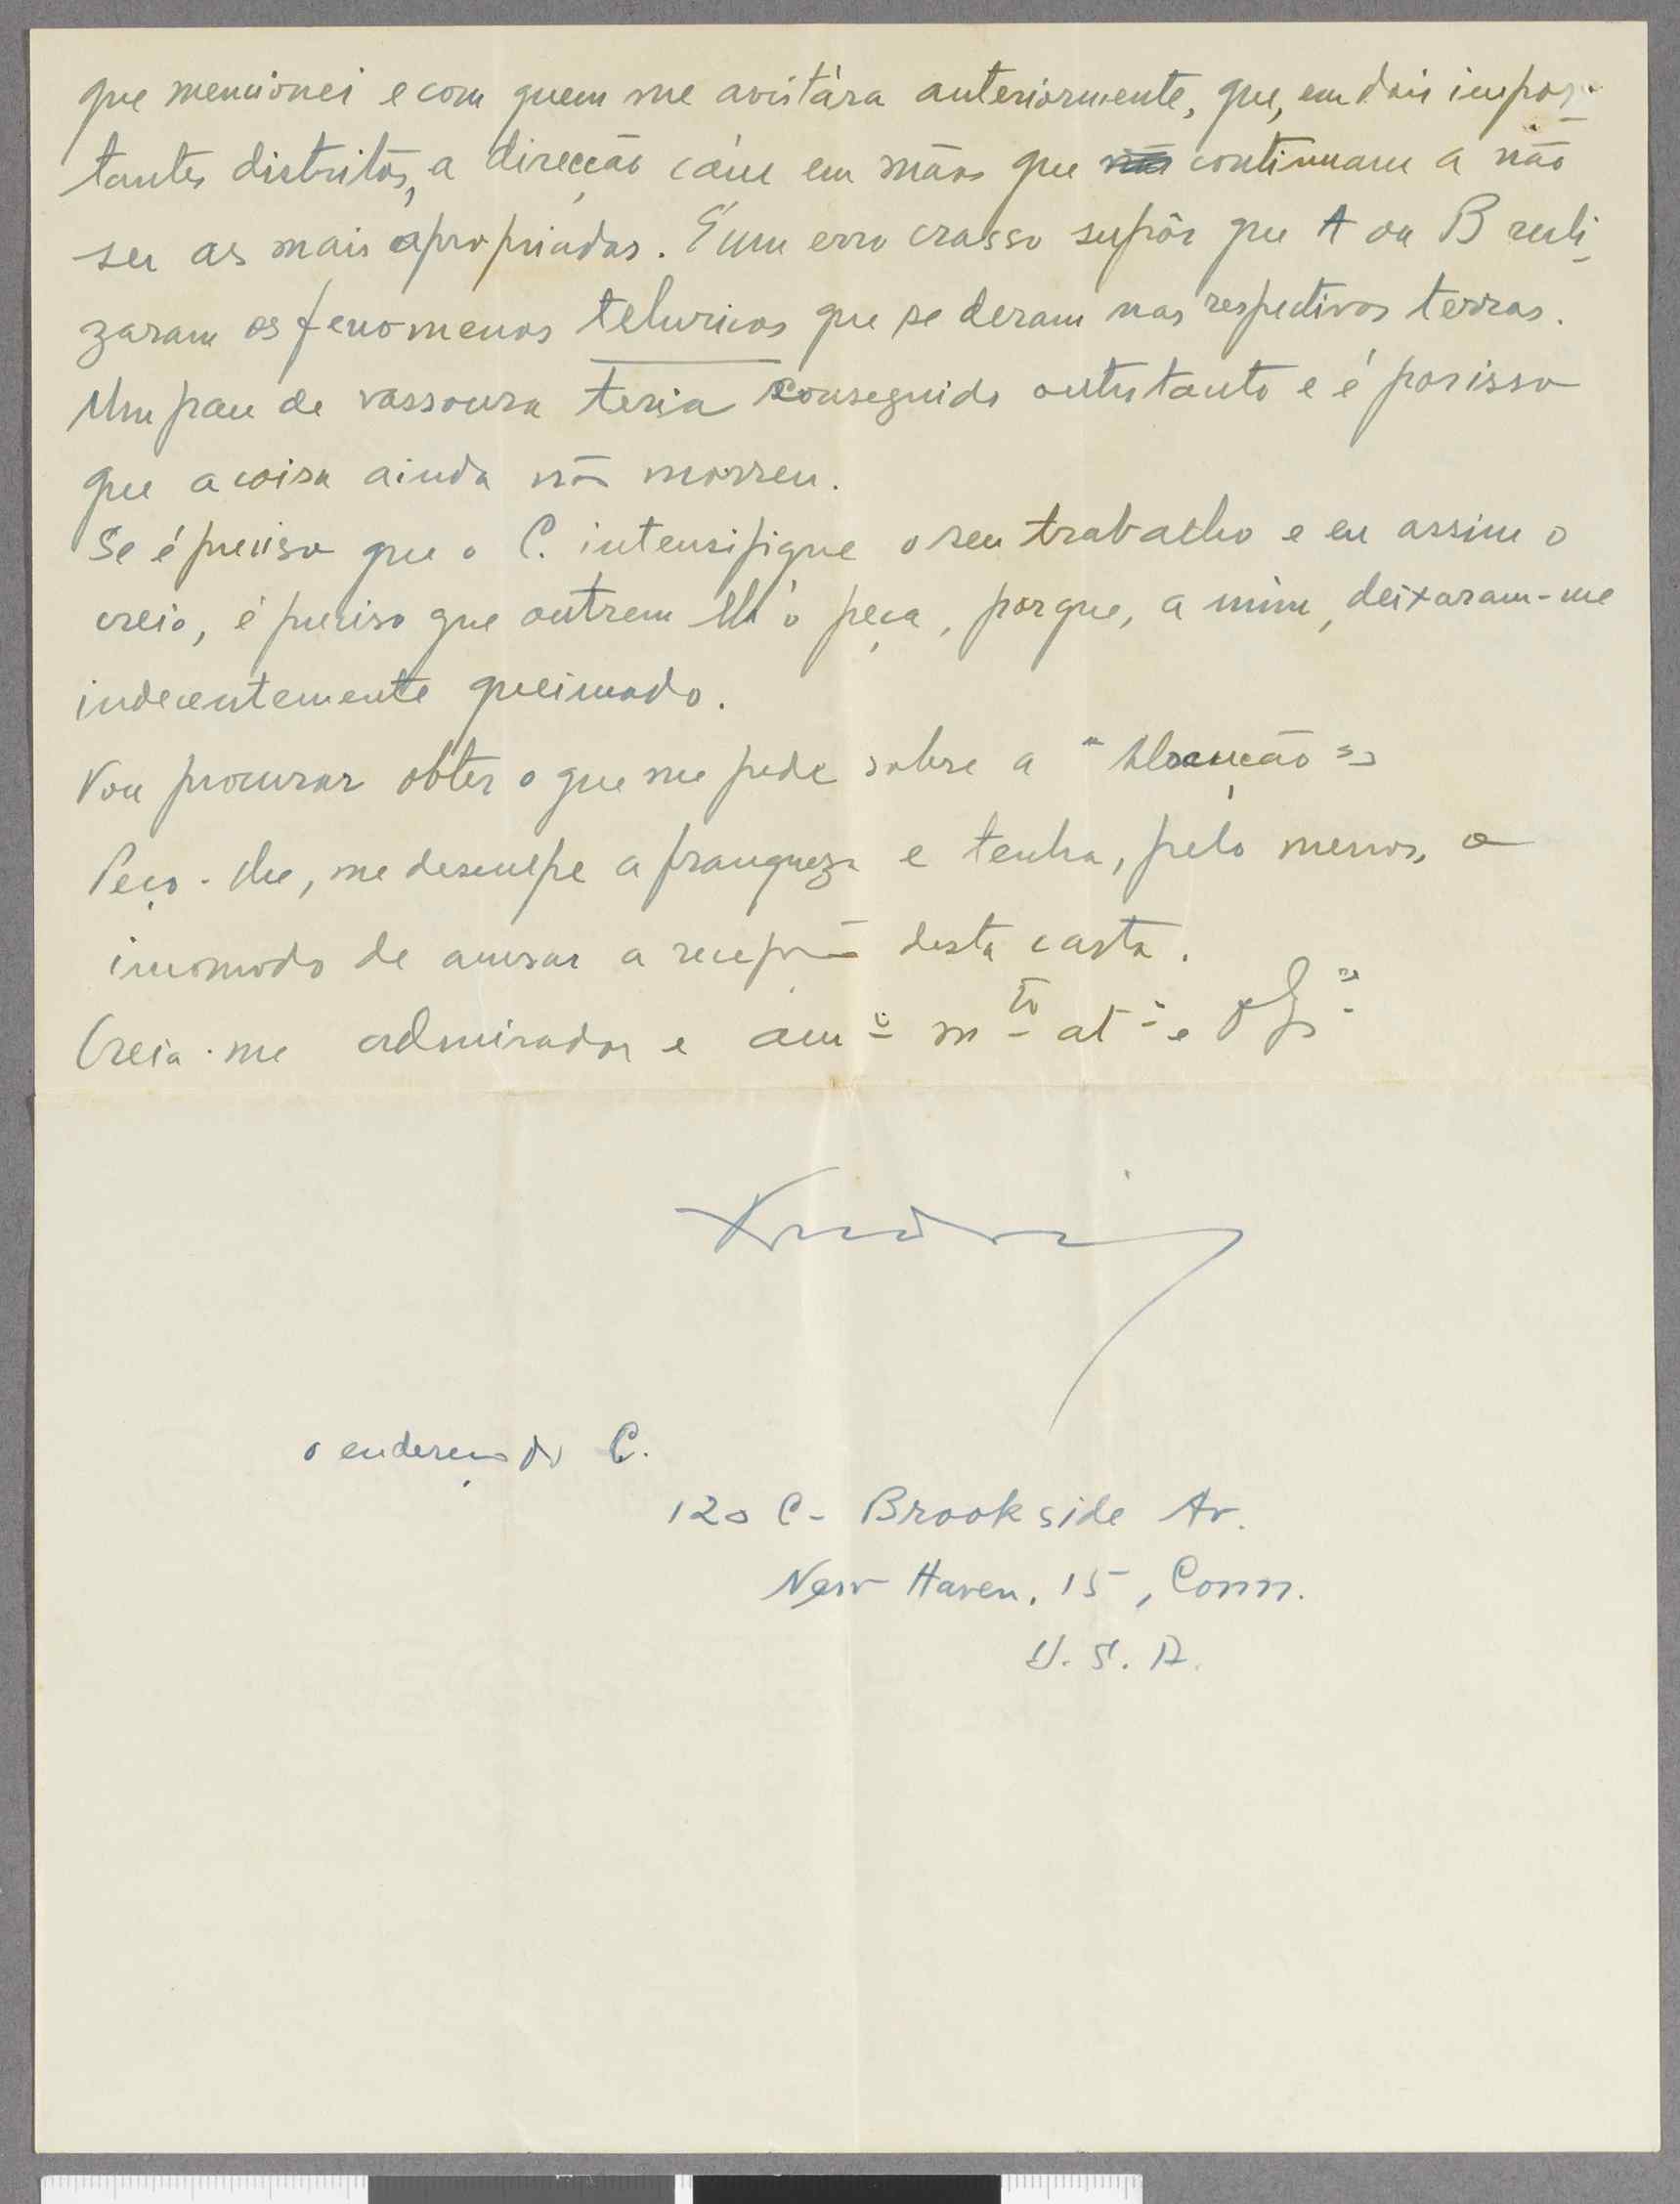 que mencionei e com quem me avistára anteriormente, que, em dois impor-
tantes distritos, a direcção cáiu em mãos que não continuam a não
ser as mais apropriadas. É um erro crasso supôr que A ou B reali-
zaram os fenomenos teluricos que se deram nas respectivas terras.
Um pau de vassoura teria conseguido outro tanto e é por isso
que a coisa ainda não morreu.
Se é preciso que o C. intensifique o seu trabalho e eu assim o
creio, é preciso que outrem lh'o peça, porque, a mim, deixaram-me
indecentemente queimado.
Vou procurar obter o que me pede sobre a "Alocução"
Peço-lhe, me desculpe a franqueza e tenha, pelo menos, o
incomodo de acusar a recepção desta carta.
Creia-me admirador e am.º m.to at.º e
o endereço do C.
120 C- Brookside Av.
New Haven, 15, Conn.
U. S. A.